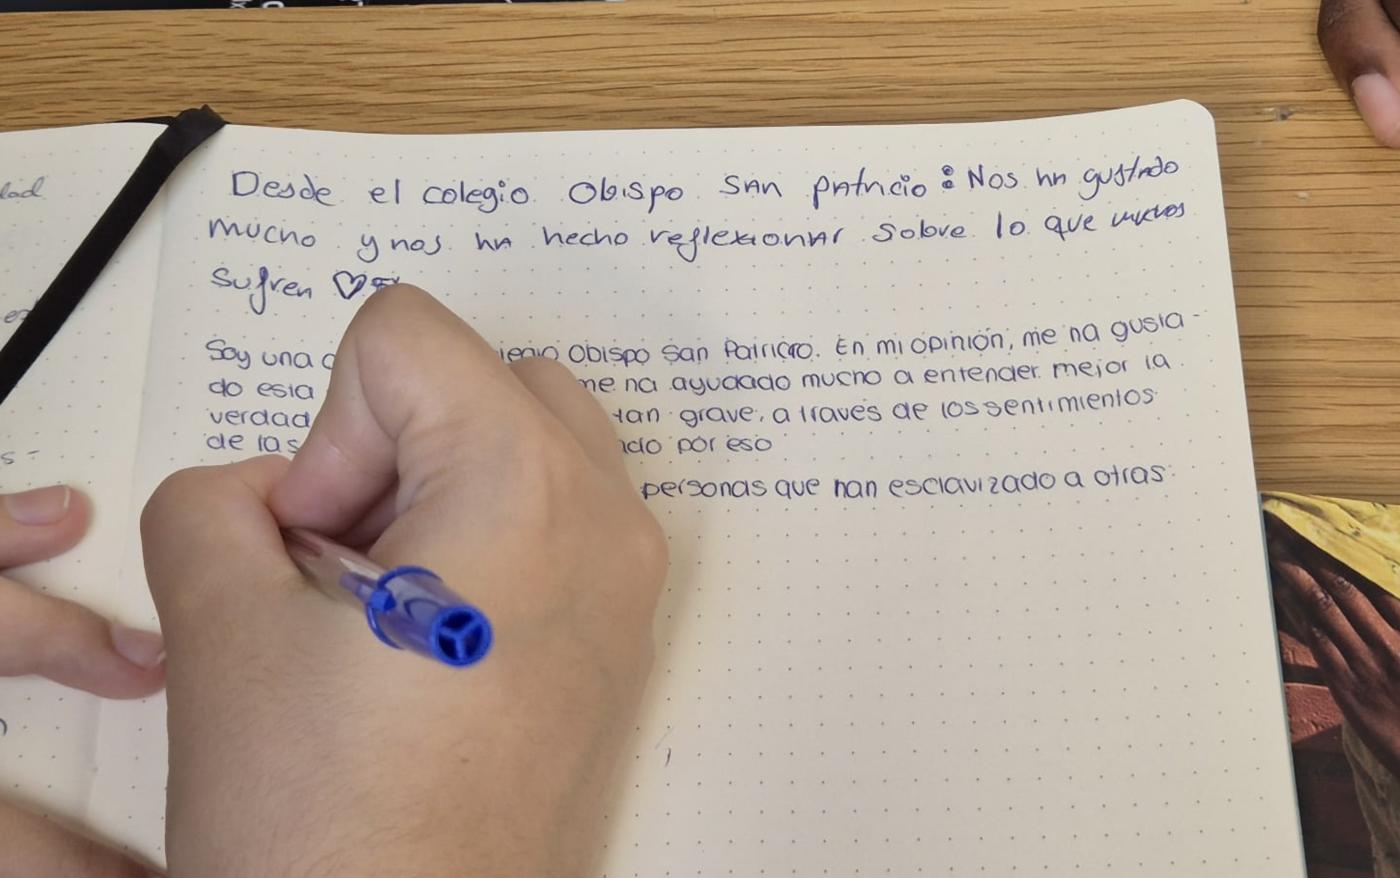 Desde el colegio Obispo SAN PATricio: Nos ha gustado
mucho y nos ha hecho reflexionar sobre lo que muchos
sufren ♡
Soy una Obispo San Patricio. En mi opinión, me ha gusta-
do esta me ha ayudado mucho a entender mejor la
verdad tan grave, a través de los sentimientos
de las por eso
personas que han esclavizado a otras
dad
s-